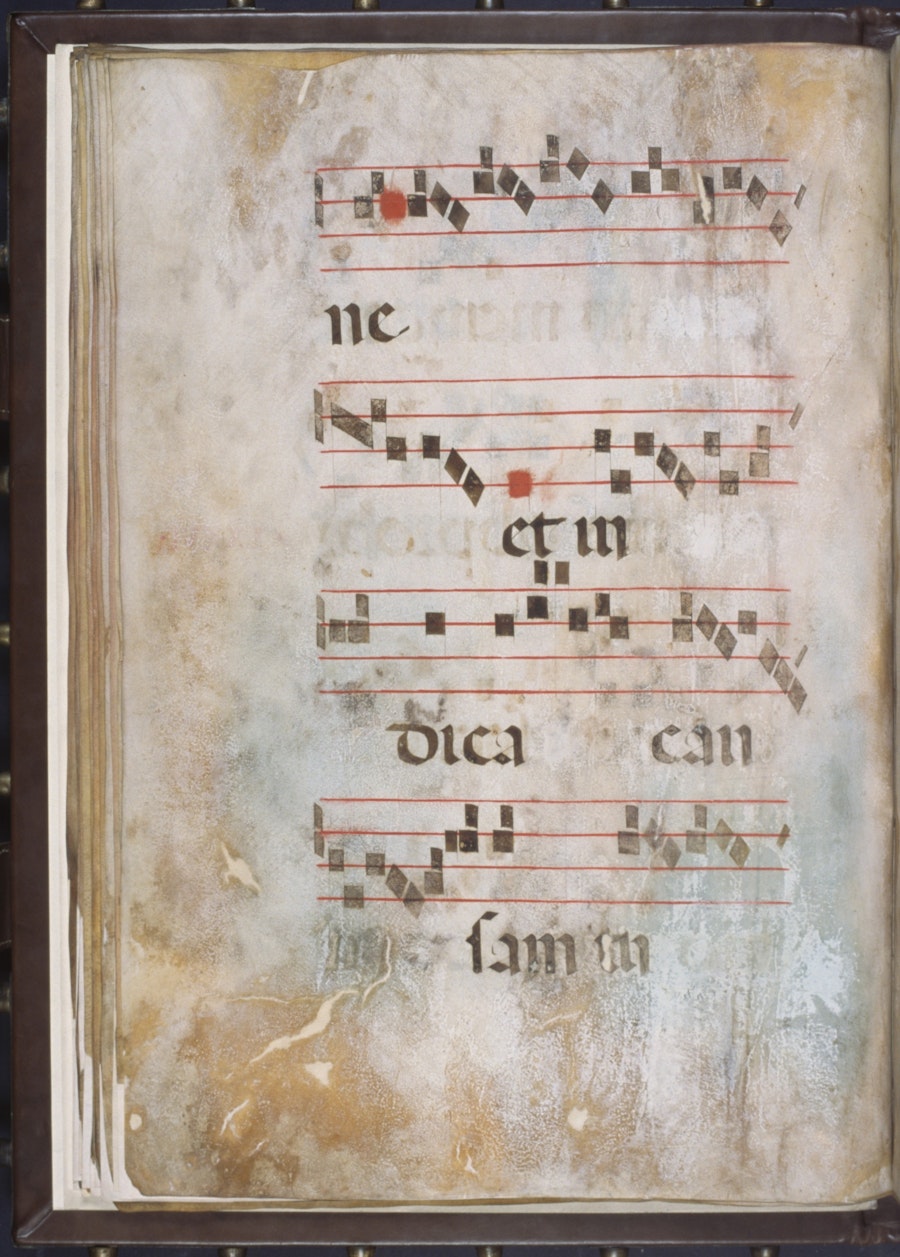 ne
et in
dica can
sam in